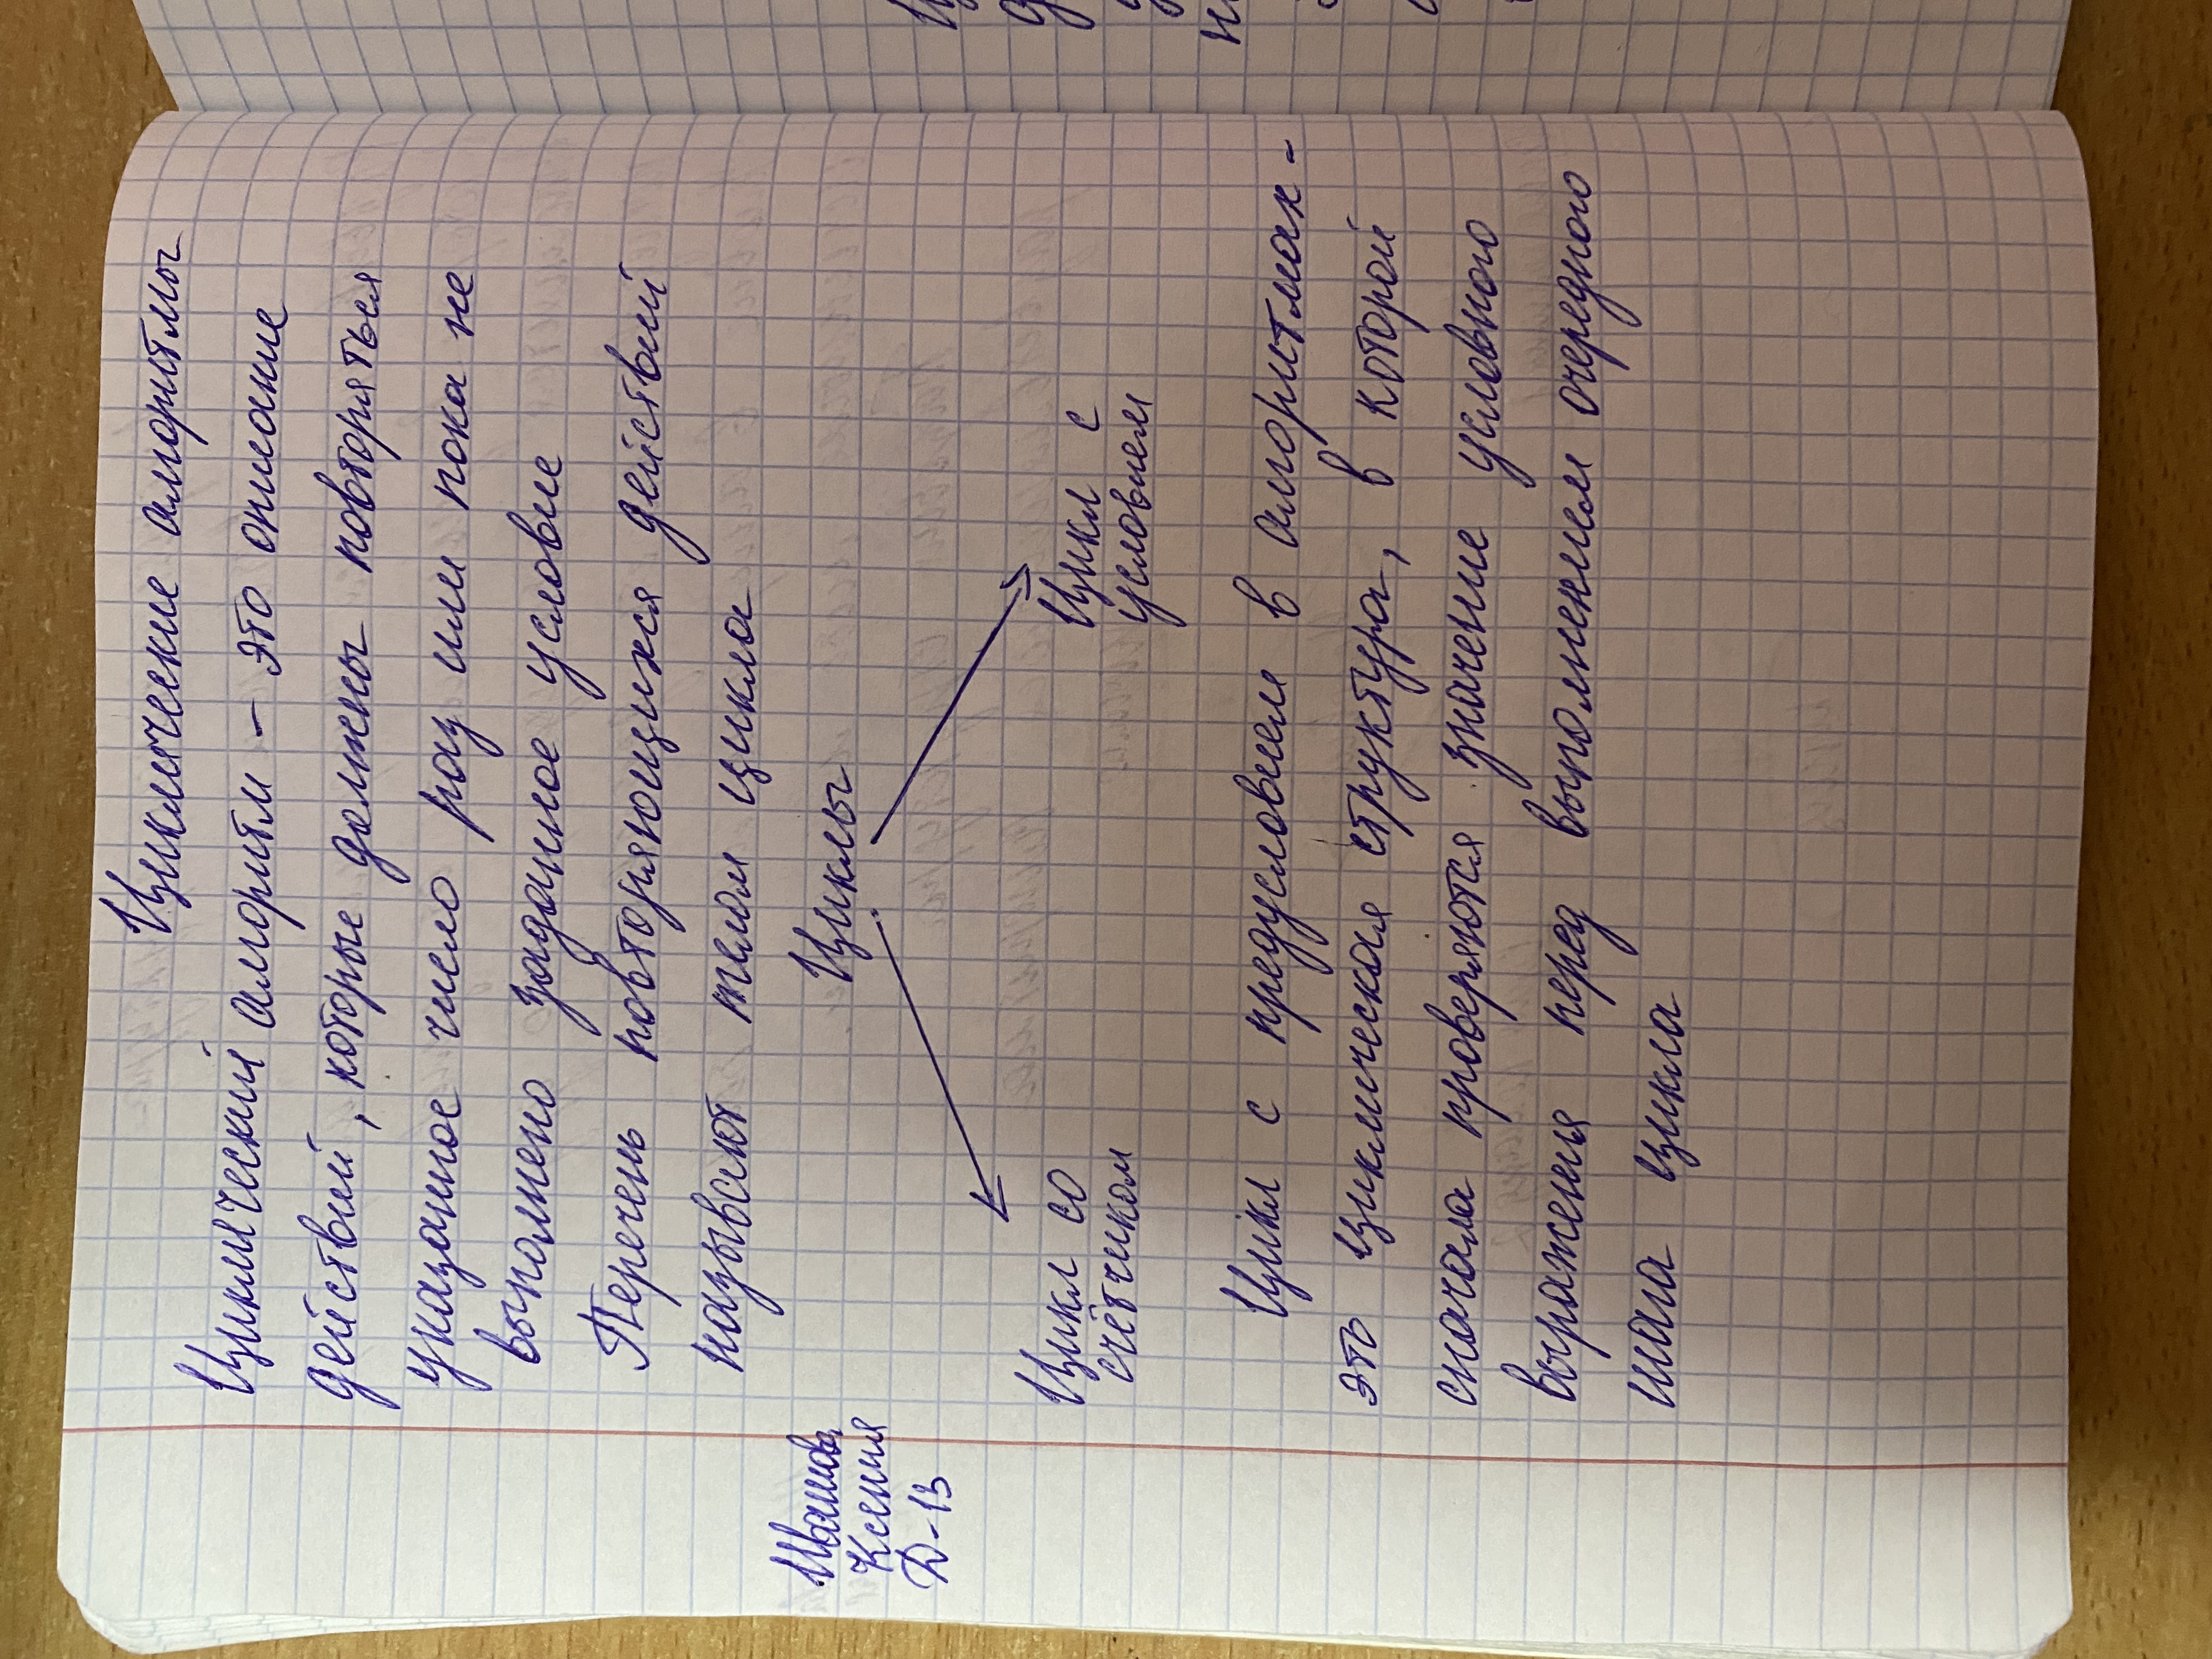 Циклические алгоритмы
Циклический алгоритм – это описание
действий, которые должны повторяться
указанное число раз или пока не
выполнено заданное условие
Перечень повторяющихся действий
называют телом цикла
Циклы
Иванова
Ксения
Д-13
Цикл со счётчиком
Цикл с условием
Цикл с предусловием в алгоритмах -
это циклическая структура, в которой
сначала проверяются значение условного
выражения перед выполнением очередного
шага цикла